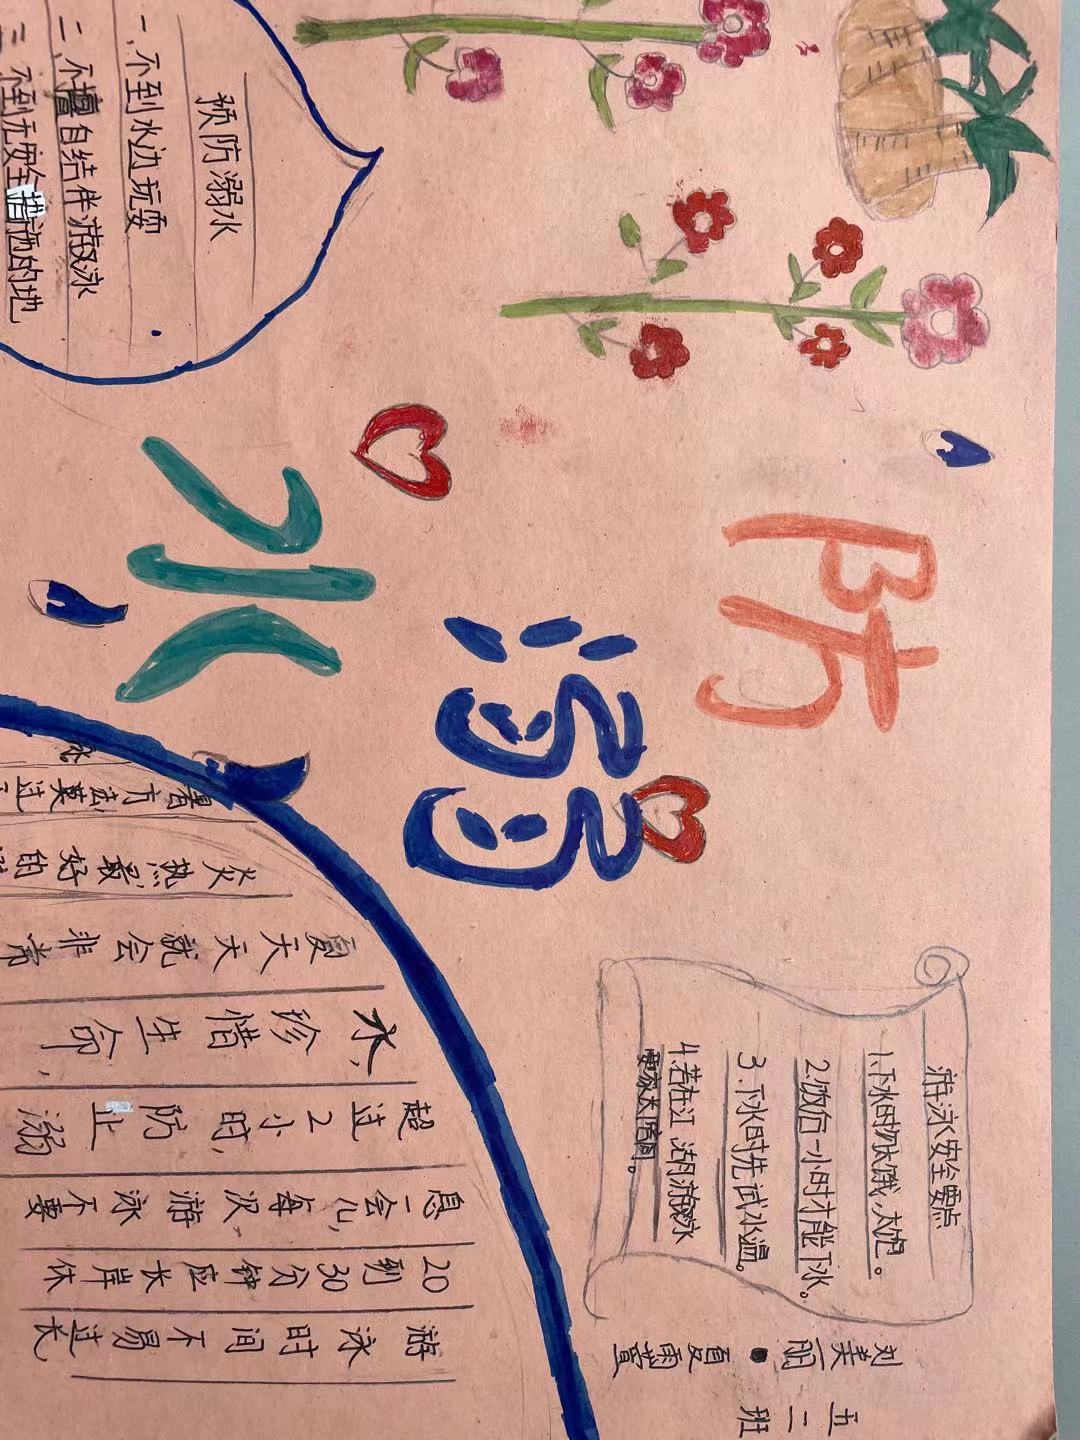 防溺水
预防溺水
一、不到水边玩耍
二、不擅自结伴游泳
三、不到无安全措施的地
游泳安全要点
1.下水时勿太饿,太饱。
2.饭后一小时才能下水。
3.下水时先试水温。
4.若在江湖游泳
要家人陪同。
刘美丽•夏雨萱
五二班
游泳时间不易过长
20到30分钟应长岸休
息一会儿,每次游泳不要
超过2小时,防止溺
水,珍惜生命,
夏天天就会非常
炎热最好的
暑方法莫过
水